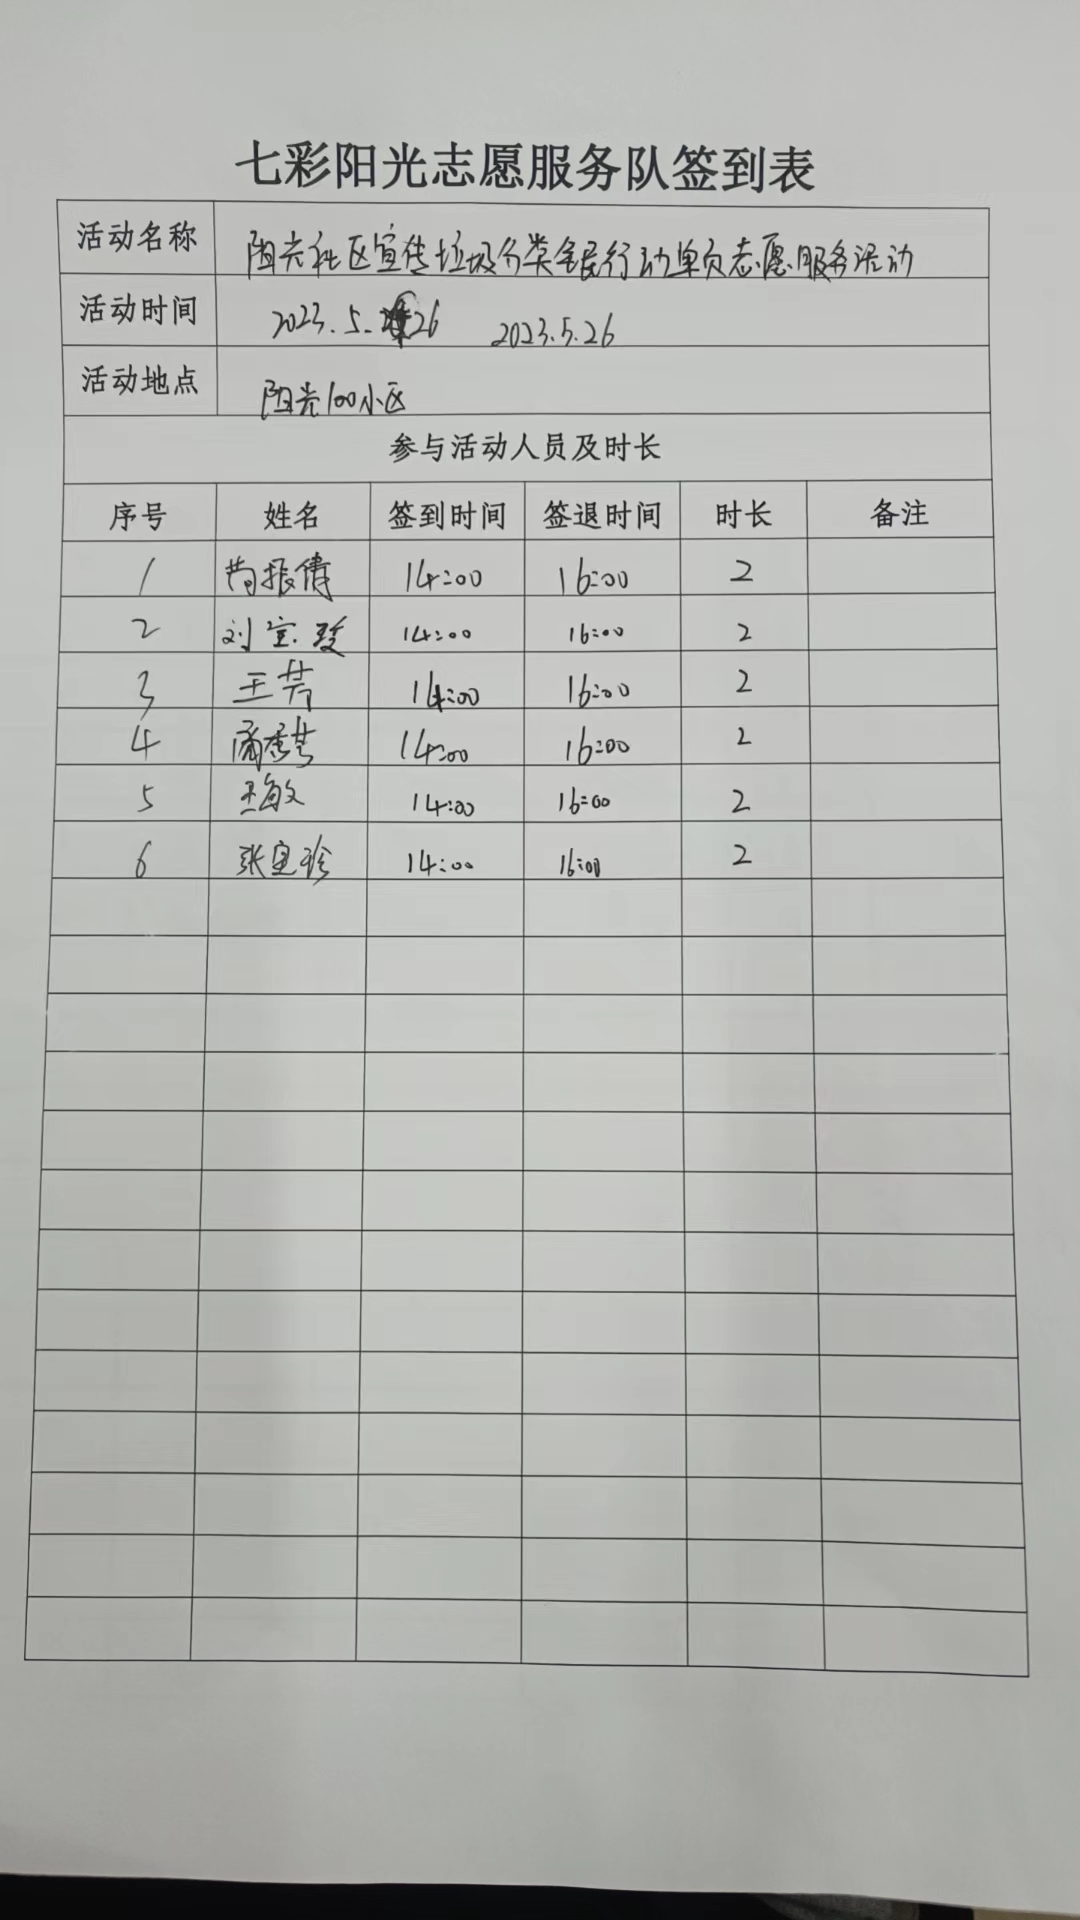 七彩阳光志愿服务队签到表
活动名称 阳光社区宣传垃圾分类全民行动单员志愿服务活动
活动时间 2023.5.26 2023.5.26
活动地点 阳光100小区
参与活动人员及时长
序号 姓名 签到时间 签退时间 时长 备注
1 14:00 16:00 2
2 刘宝 14:00 16:00 2
3 王芳 14:00 16:00 2
4 14:00 16:00 2
5 王敏 14:00 16:00 2
6 张宝珍 14:00 16:00 2